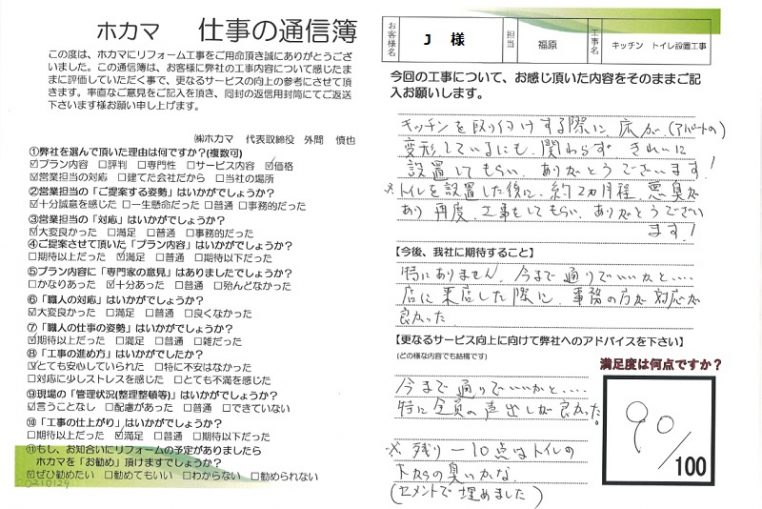 ホカマ 仕事の通信簿
この度は、ホカマにリフォーム工事をご用命頂き誠にありがとうござ
いました。この通信簿は、お客様に弊社の工事内容について感じたま
まに評価していただく事で、更なるサービスの向上の参考にさせて頂
きます。率直なご意見をご記入頂き、同封の返信用封筒にてご返送
下さいます様お願い申し上げます。
㈱ホカマ 代表取締役 外間 慎也
①弊社を選んで頂いた理由は何ですか?(複数可)
☑プラン内容 □評判 □専門性 □サービス内容 ☑価格
☑営業担当の対応 □建てた会社だから □当社の場所
②営業担当の「ご提案する姿勢」はいかがでしょうか?
☑十分誠意を感じた □一生懸命だった □普通 □事務的だった
③営業担当の「対応」はいかがでしょうか?
☑大変良かった □満足 □普通 □事務的だった
④ご提案させて頂いた「プラン内容」はいかがでしょうか?
□期待以上だった ☑満足 □普通 □期待以下だった
⑤プラン内容に「専門家の意見」はありましたでしょうか?
□かなりあった ☑十分あった □普通 □殆んどなかった
⑥「職人の対応」はいかがでしょうか?
☑大変良かった □満足 □普通 □良くなかった
⑦「職人の仕事の姿勢」はいかがでしょうか?
☑期待以上だった □満足 □普通 □雑だった
⑧「工事の進め方」はいかがでしたか?
☑とても安心していられた □特に不安はなかった
□対応に少しストレスを感じた □とても不満を感じた
⑨現場の「管理状況(整理整頓等)」はいかがでしょうか?
☑言うことなし □配慮があった □普通 □できていない
⑩「工事の仕上がり」はいかがでしょうか?
□期待以上だった ☑満足 □普通 □期待以下だった
⑪もし、お知合いにリフォームの予定がありましたら
ホカマを「お勧め」頂けますでしょうか?
☑ぜひ勧めたい □勧めてもいい □わからない □勧められない
お客様名 J 様 担当 福原 工事名 キッチン トイレ設置工事
今回の工事について、お感じ頂いた内容をそのままご記
入お願いします。
キッチンを取り付けする際に、床が(アパートの)
変形しているにも、関わらず きれいに
設置してもらい、ありがとうございます!
※トイレを設置した後に、約2カ月程、悪臭が
あり 再度、工事をしてもらい、ありがとうござい
ます!
【今後、我社に期待すること】
特にありません、今まで通りでいいかと....
店に来店した際に、事務の方が対応が
良かった
【更なるサービス向上に向けて弊社へのアドバイスを下さい】
(どの様な内容でも結構です)
満足度は何点ですか?
今まで通りでいいかと....
特に全員の声出しが良かった。
90/100
※残り-10点はトイレの
下からの臭いかな
(セメントで埋めました)